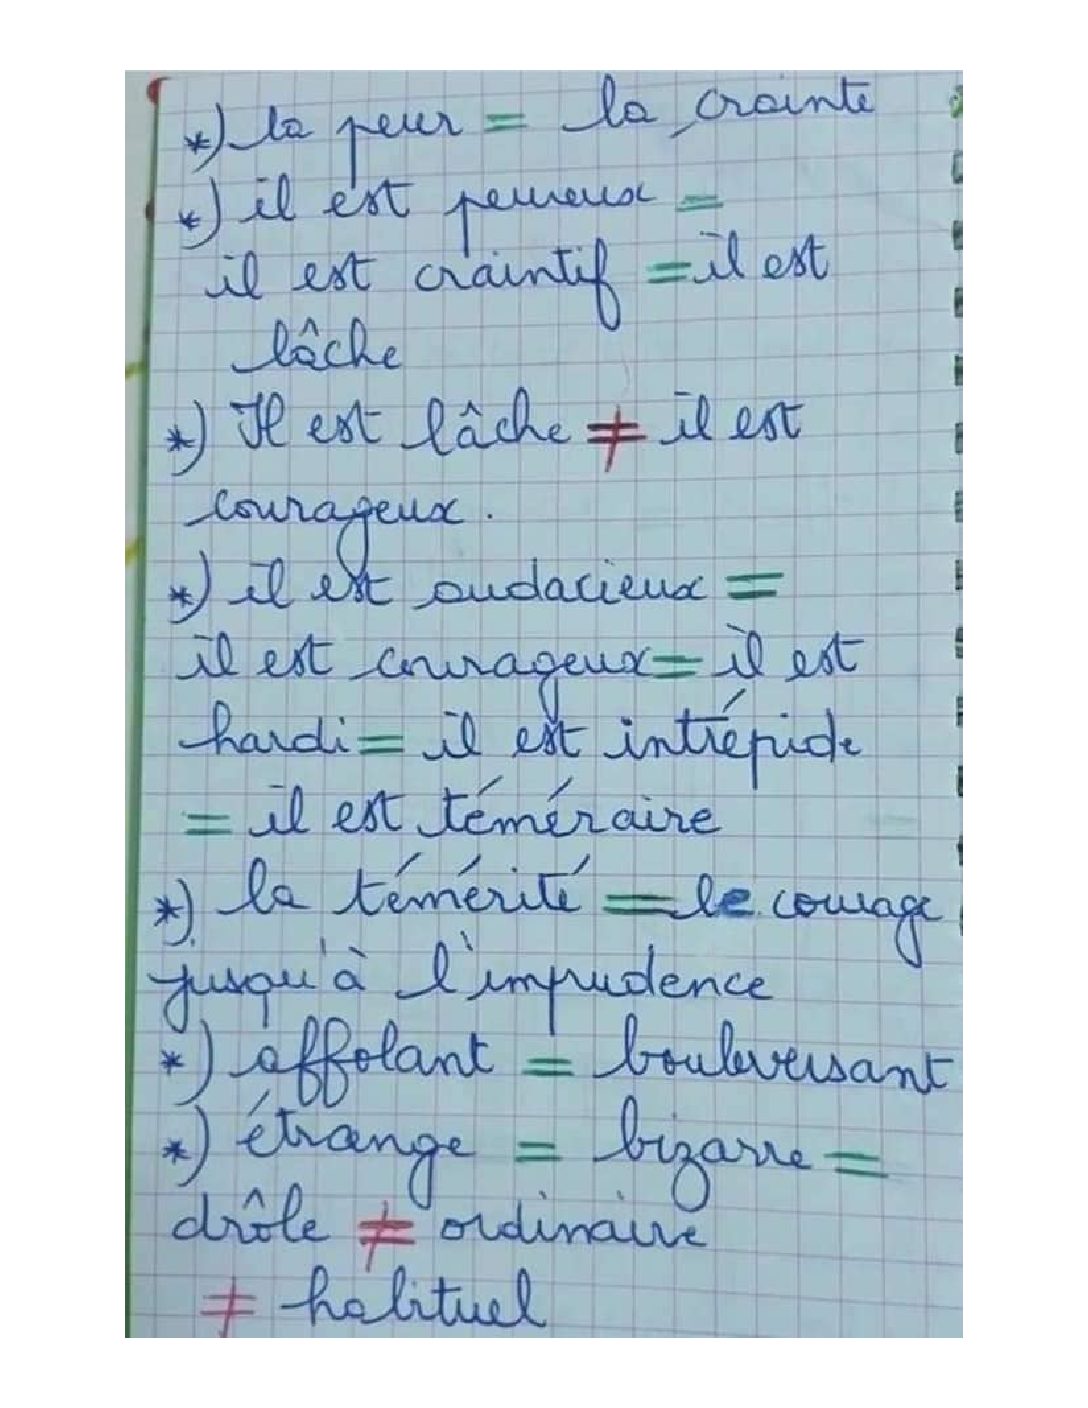 *) la peur = la crainte
*) il est peureux =
il est craintif = il est
lâche
*) Il est lâche ≠ il est
courageux.
*) il est audacieux =
il est courageux = il est
hardi = il est intrépide
= il est téméraire
*) la témérité = le courage
jusqu'à l'imprudence
*) affolant = bouleversant
*) étrange = bizarre =
drôle ≠ ordinaire
≠ habituel